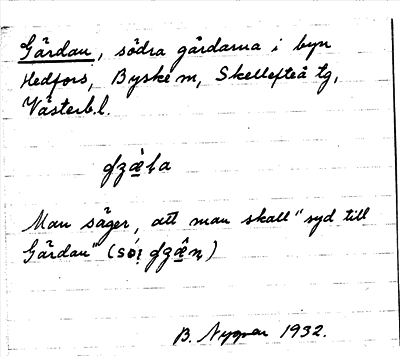 Gärdan, södra gärdarna i byn
Hedfors, Byske sn, Skellefteå tg,
Västerb.l.
Man säger, att man skall "syd till
Gärdan"
B. Nygren 1932.